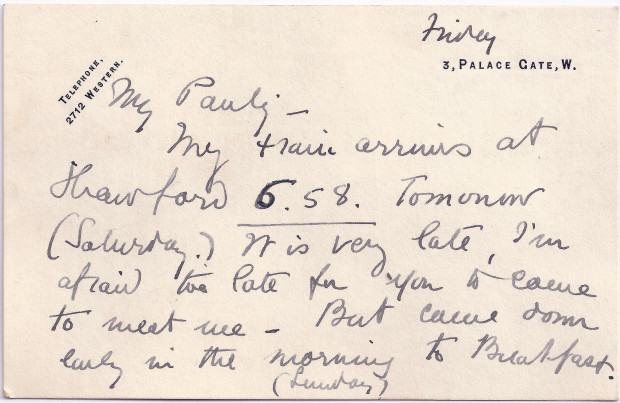 Friday
3, PALACE GATE, W.
TELEPHONE,
2712 WESTERN.
My Pauly—
My train arrives at
Shawford 6.58. Tomorrow
(Saturday.) It is very late, I'm
afraid too late for you to come
to meet me – But come down
early in the morning to Breakfast.
(Sunday)